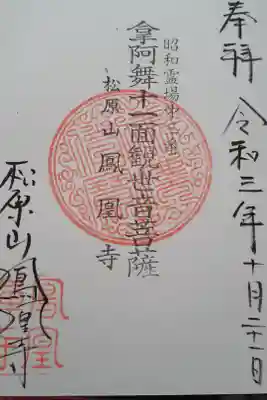 奉拜 令和三年十月二十一日
昭和霊場廿二番
拿阿舞十一面観世音菩薩
松原山 鳳凰寺
松原山鳳凰寺
鳳凰